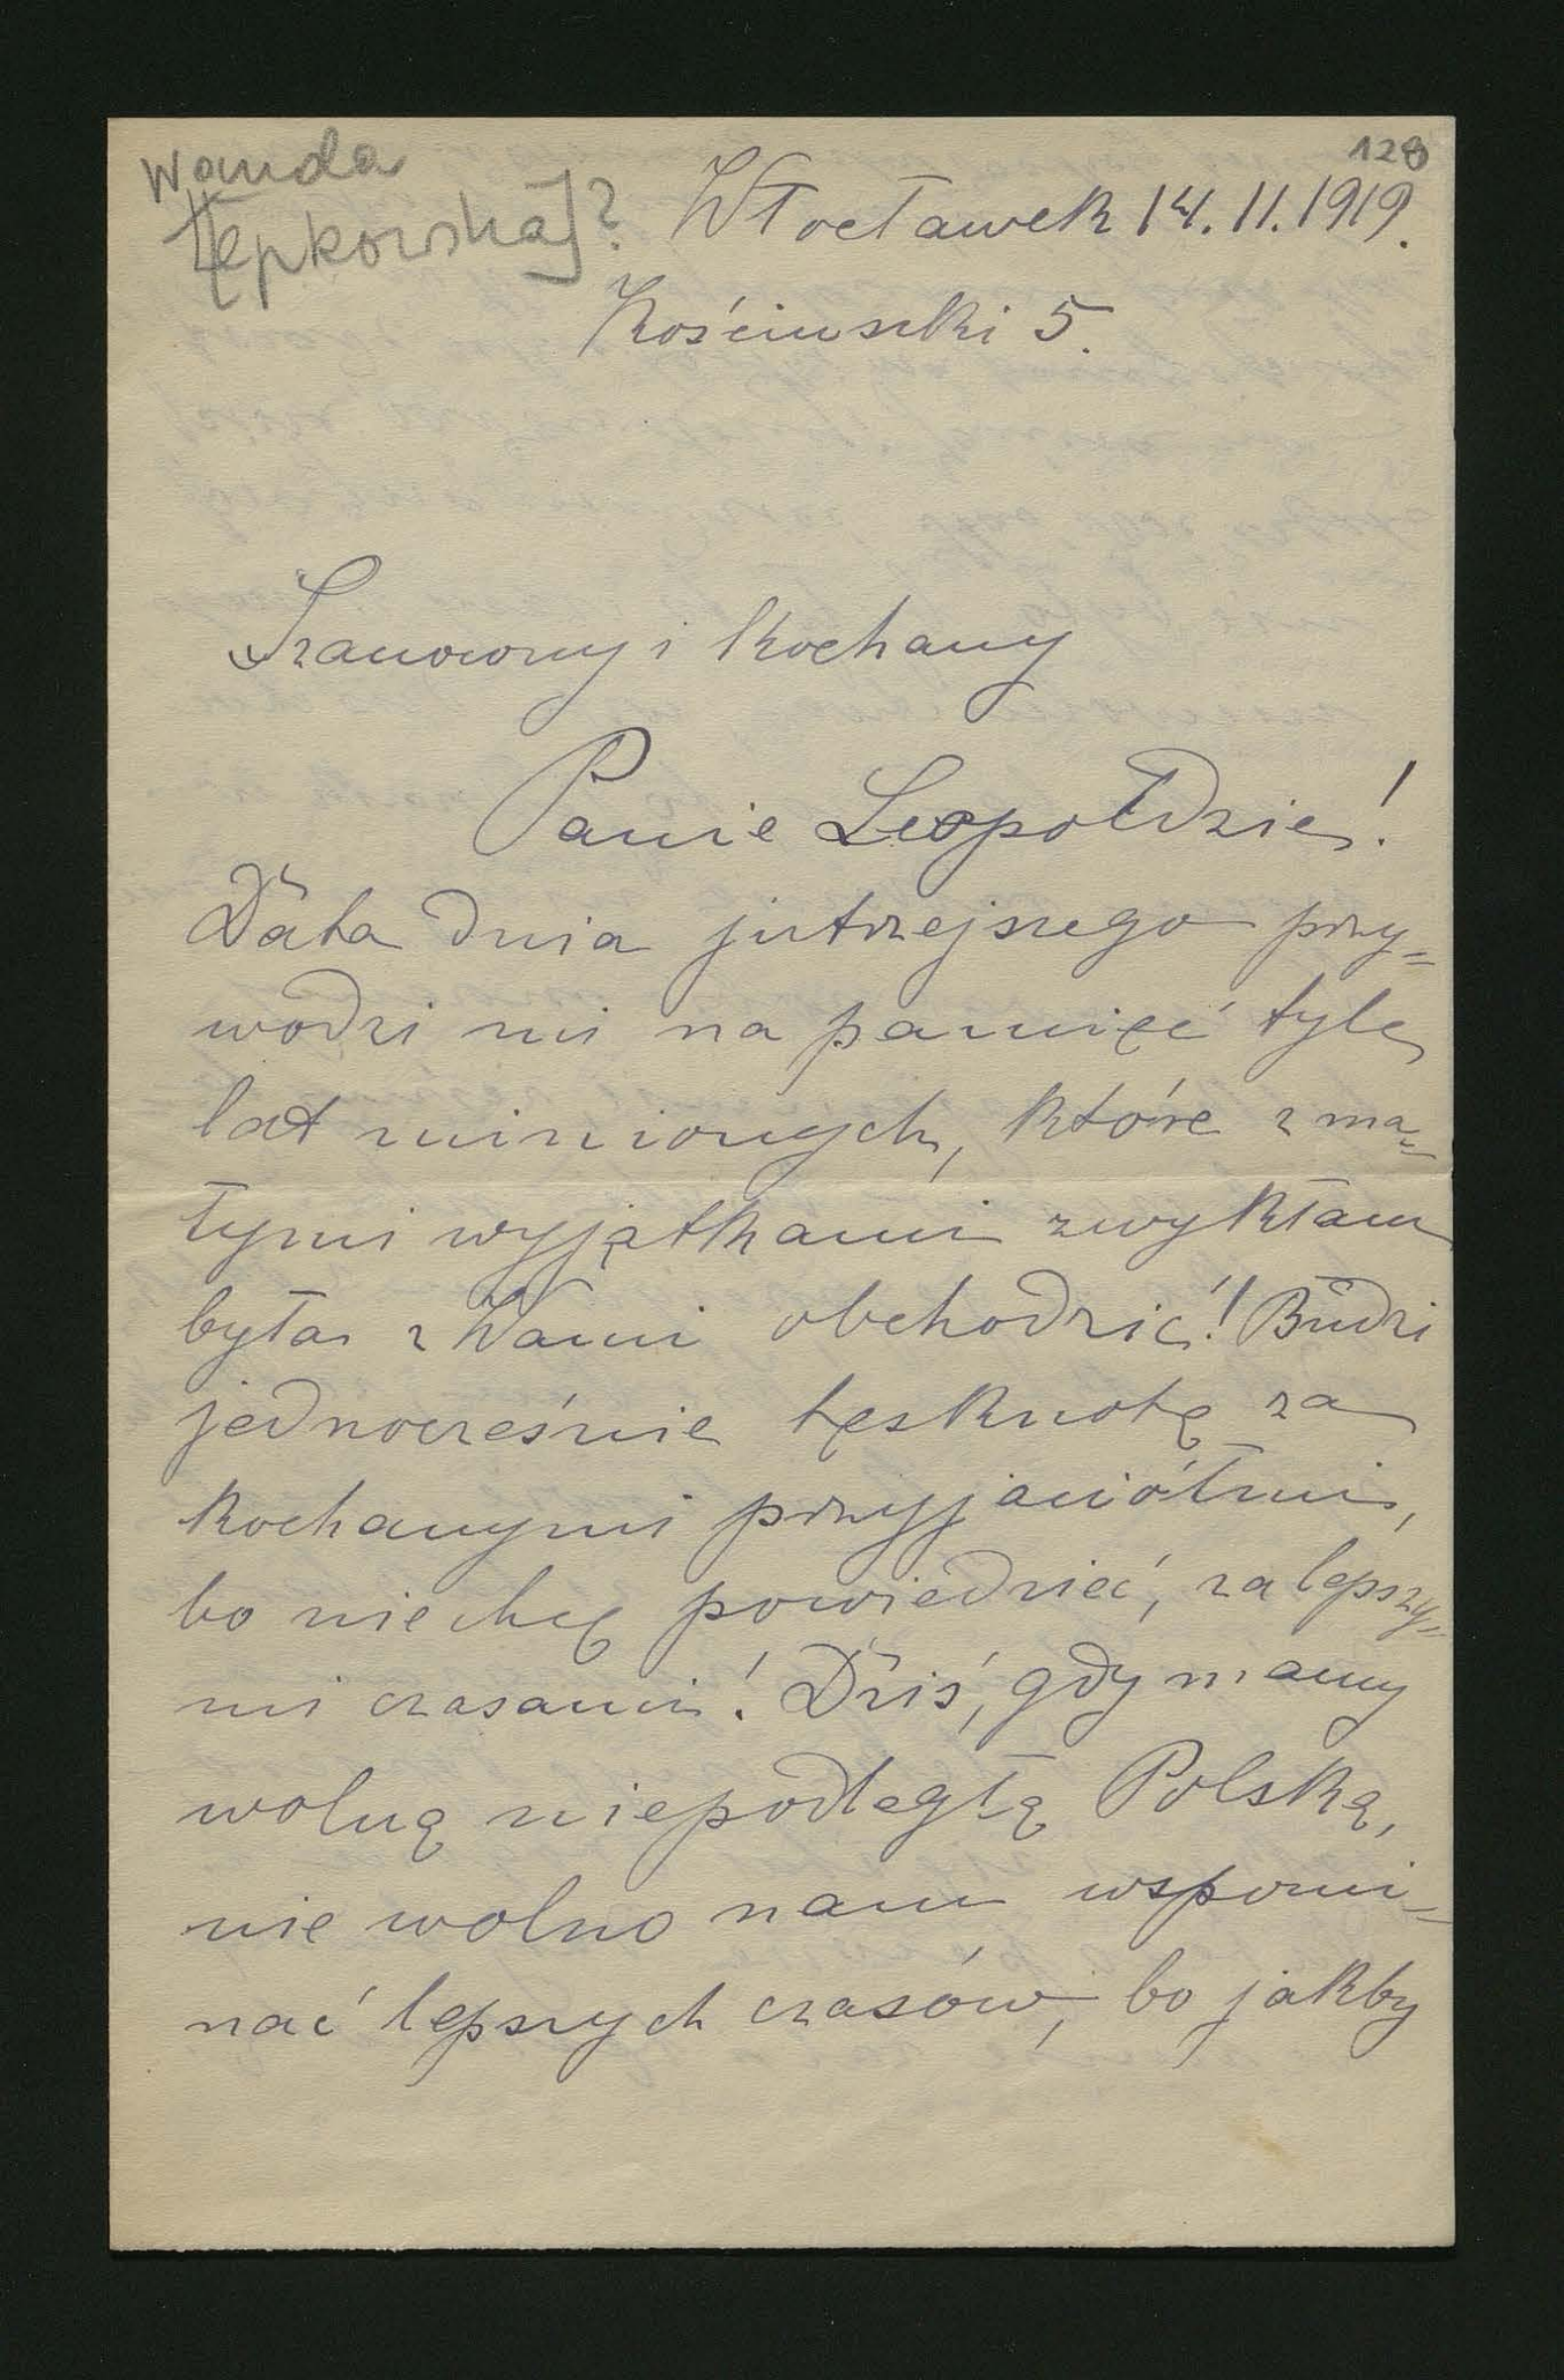 Wanda
[Łępkowska]?
128
Włocławek 14.11.1919.
Kościuszki 5.
Szanowny i Kochany
Panie Leopoldzie!
Data dnia jutrzejszego przy=
wodzi mi na pamięć tyle
lat minionych, które z ma=
łymi wyjątkami zwykłam
była z Wami obchodzić! Budzi
jednocześnie tęsknotę za
Kochanymi przyjaciółmi,
bo nie chcę powiedzieć, za lepszy=
mi czasami! Dziś, gdy mamy
wolną niepodległą Polskę,
nie wolno nam wspomi=
nać lepszych czasów, bo jakby